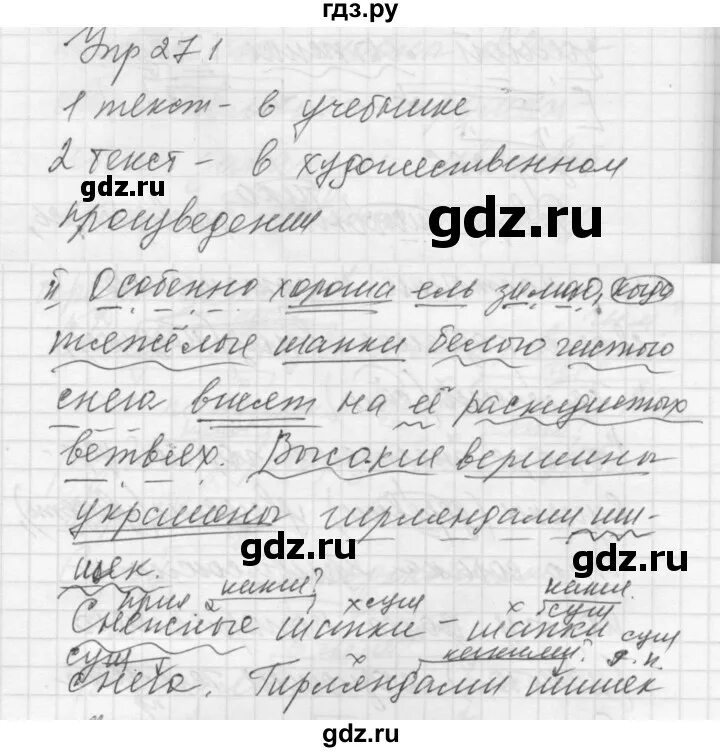 гдз.ру
Упр 271
1 текст - в учебнике
2 текст - в художественном
произведении
gdz.ru
II Особенно хороша ель зимой, когда
тяжёлые шапки белого чистого
снега висят на её раскидистых
ветвях. Высокие вершины
украшены гирляндами ши-
gdz.ru
gdz.ru
шек.
прил какие? сущ какие
сущ
Снежные шапки - шапки сущ
сущ какими? р. п.
снега. Гирляндами шишек
gdz.ru
gdz.ru